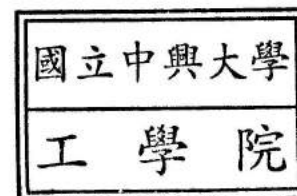 國立中興大學
工學院